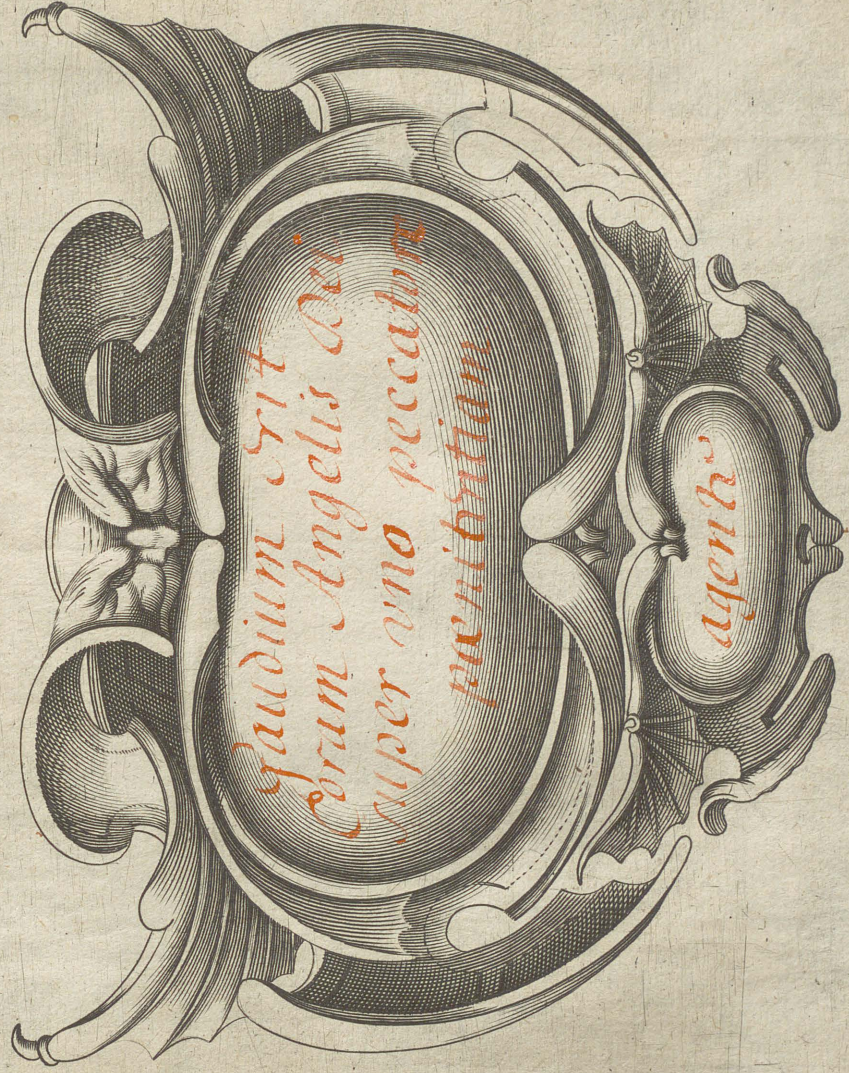 Gaudium Erit
Coram Angelis Dei
super vno peccatore
pænitentiam
agente